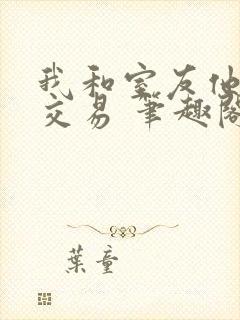 我和室友他
交易 笔趣阁
葉童